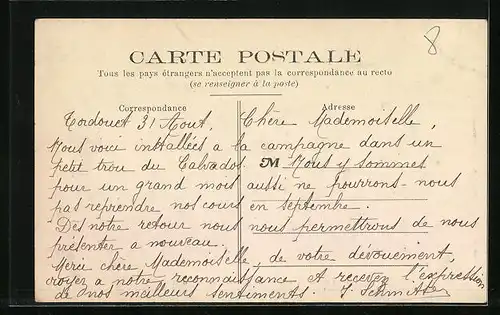 8
CARTE POSTALE
Tous les pays étrangers n'acceptent pas la correspondance au recto
(se renseigner à la poste)
Correspondance
Adresse
Tordouet 31 Aout, Chère Mademoiselle,
Nous voici installées a la campagne dans un
petit trou du Calvados. M Nous y sommes
pour un grand mois aussi ne pourrons-nous
pas reprendre nos cours en septembre.
Des notre retour nous nous permettrons de nous
présenter a nouveau.
Merci chère Mademoiselle, de votre dévouement,
croyez a notre reconnaissance et recevez l'expression
de nos meilleurs sentiments. J. Schmitter